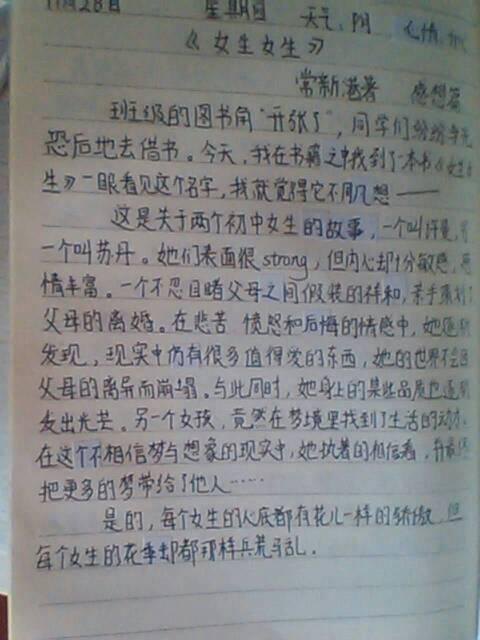 11月28日 星期日 天气:阴 心情:
《女生女生》
常新港著 感想篇
班级的图书角“开张了”,同学们纷纷争先
恐后地去借书。今天,我在书籍之中找到了一本书《女生女
生》一眼看见这个名字,我就觉得它不同凡想——
这是关于两个初中女生的故事,一个叫许曼,另
一个叫苏丹。她们表面很strong,但内心却十分敏感,感
情丰富。一个不忍目睹父母之间假装的祥和,亲手策划了
父母的离婚。在悲苦 愤怒和后悔的情感中,她逐渐
发现,现实中仍有很多值得爱的东西,她的世界不会因
父母的离异而崩塌。与此同时,她身上的某些品质也逐渐
发出光芒。另一个女孩,竟然在梦境里找到了生活的动力,
在这个不相信梦与想象的现实中,她执着的相信着,并最终
把更多的梦带给了他人……
是的,每个女生的心底都有花儿一样的骄傲,但
每个女生的花季却都那样兵荒马乱.